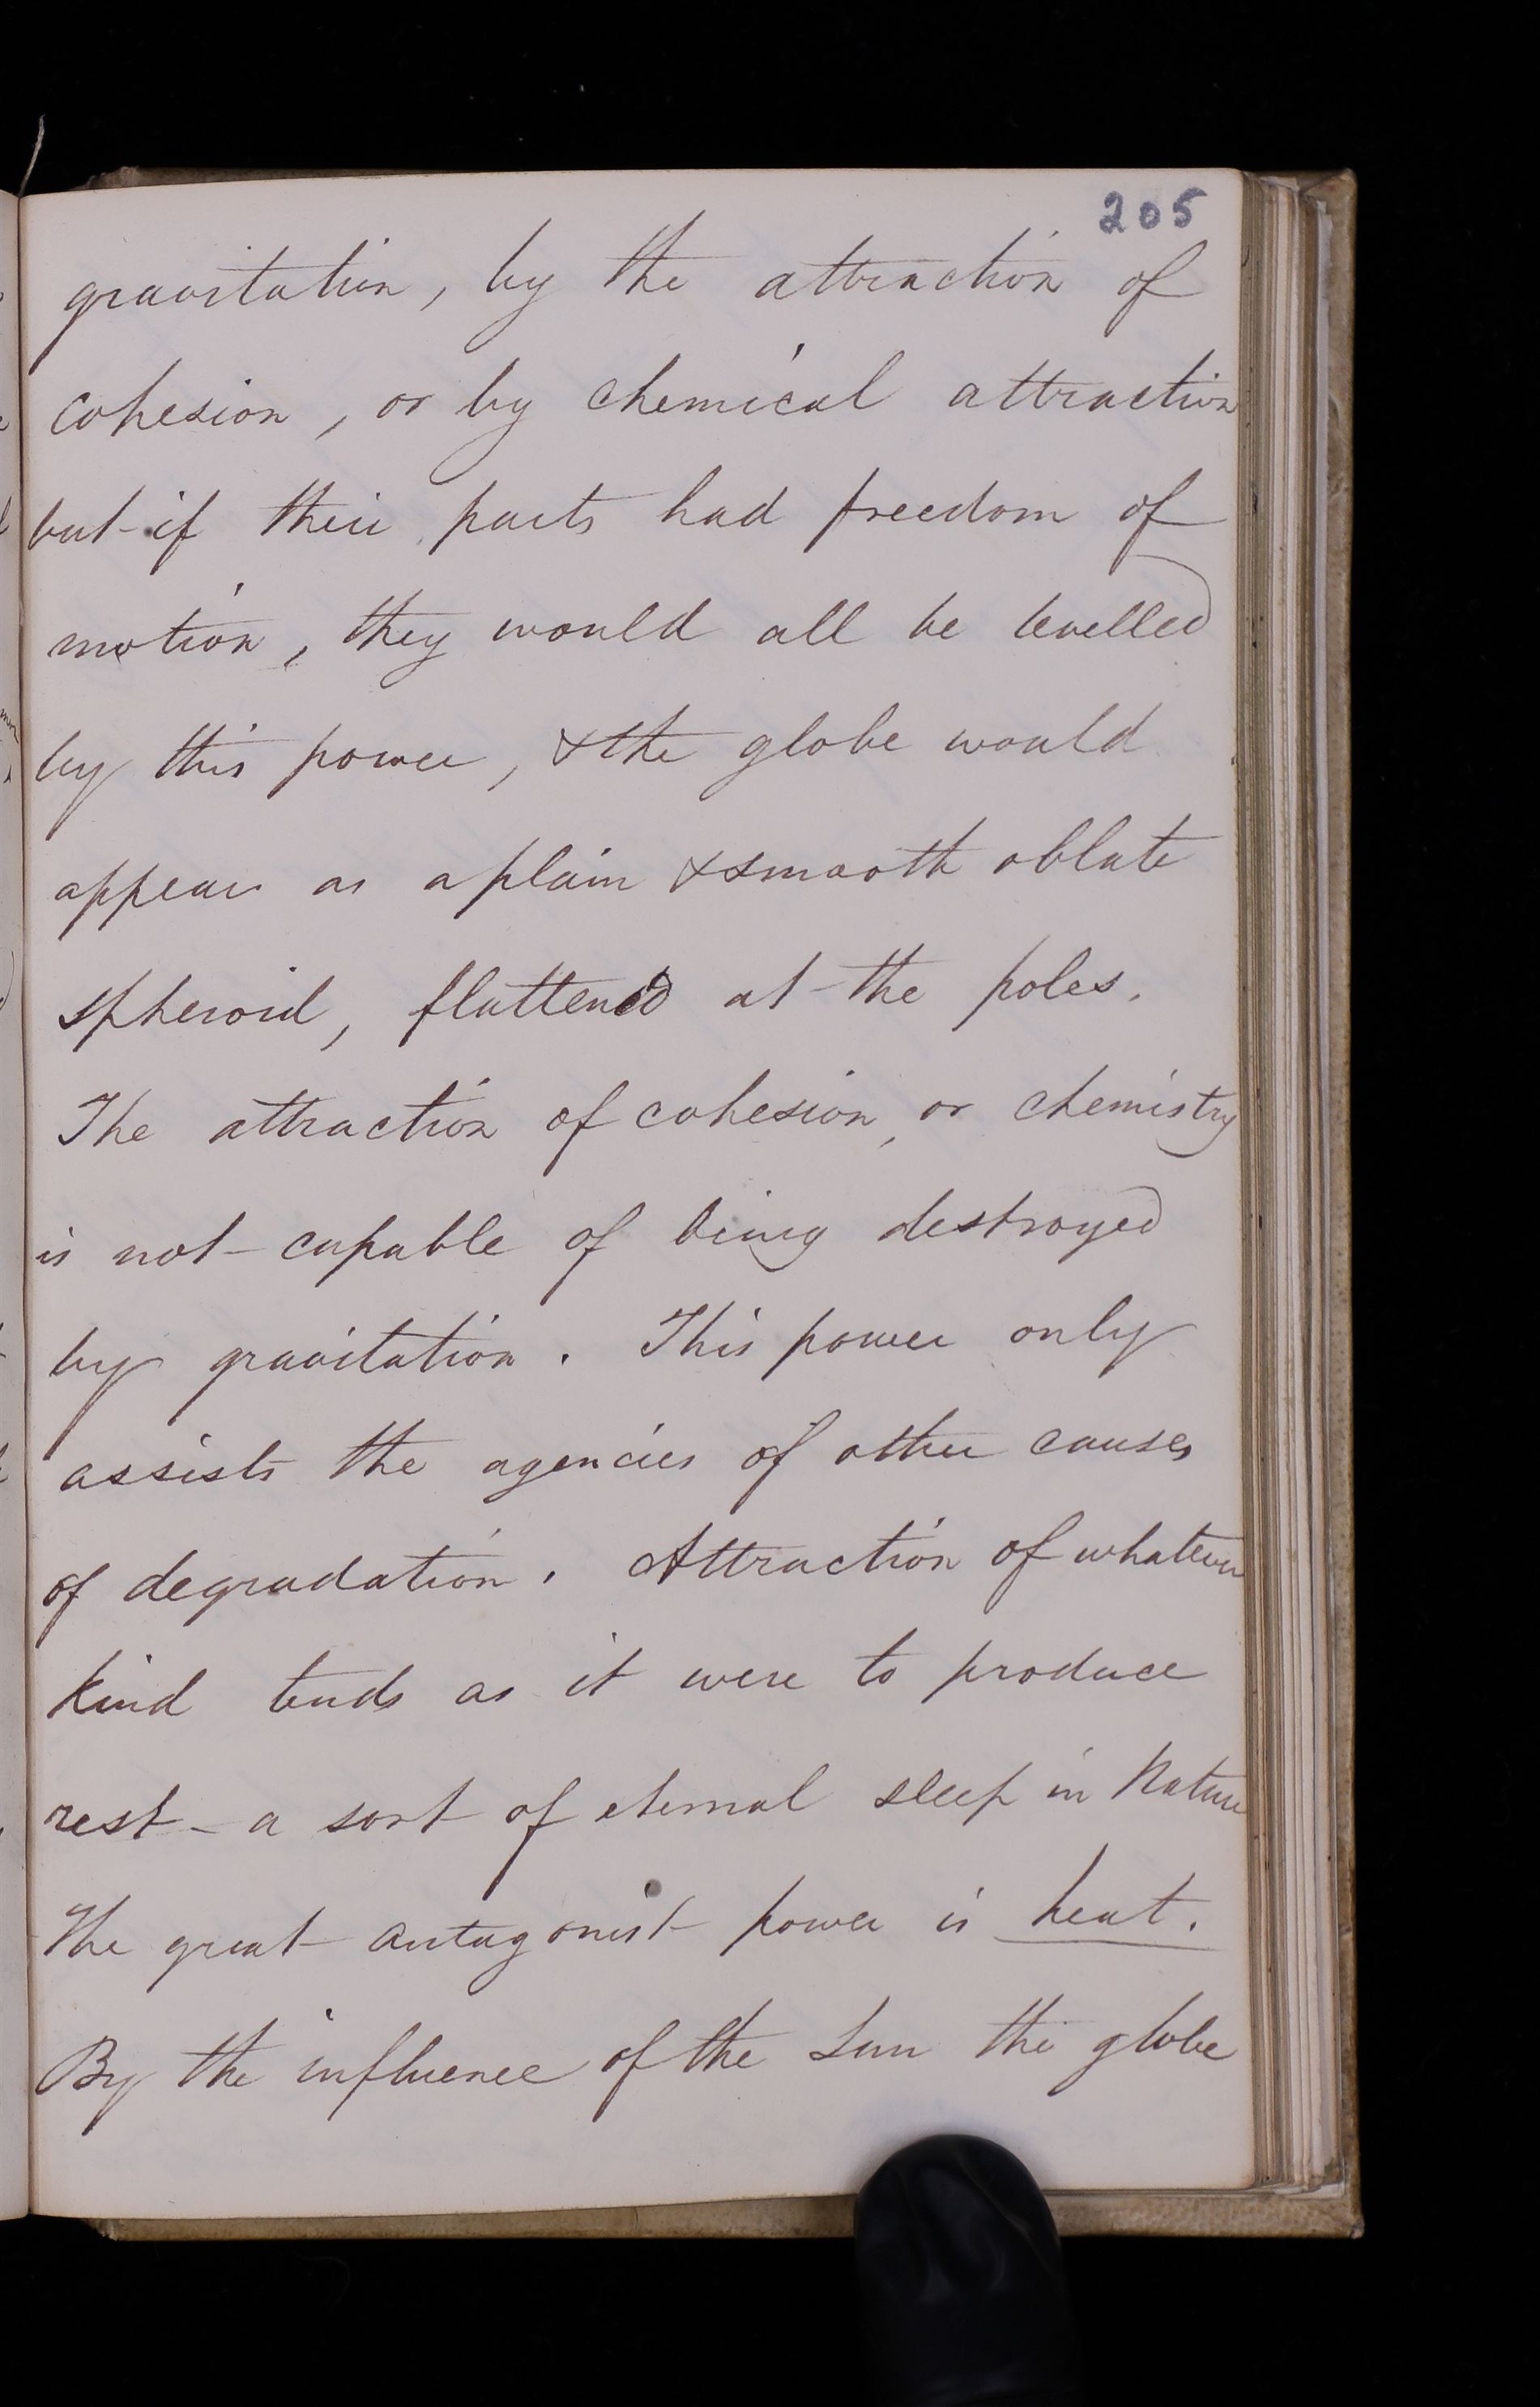 205
gravitation, by the attraction of
cohesion, or by chemical attraction
but if their parts had freedom of
motion, they would all be levelled
by this power, & the globe would
appear as a plain & smooth oblate
spheroid, flattened at the poles.
The attraction of cohesion, or chemistry
is not capable of being destroyed
by gravitation. This power only
assists the agencies of other causes
of degradation. Attraction of whatever
kind tends as it were to produce
rest - a sort of eternal sleep in Nature
The great antagonist power is heat.
By the influence of the Sun the globe